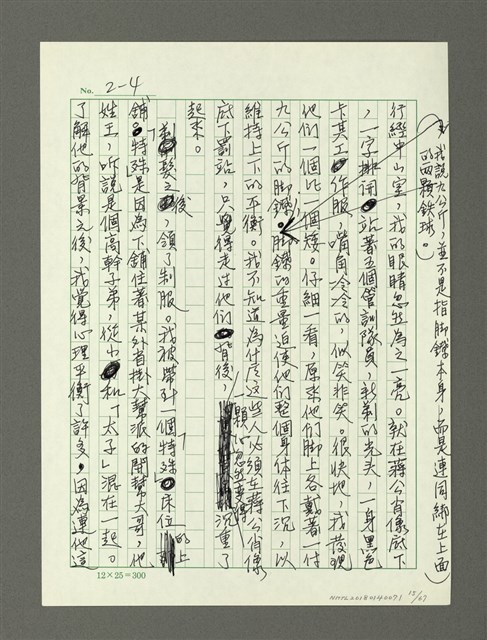 No. 2-4
(我說九公斤，並不是指腳鐐本身，而是連同綁在上面的四顆鉄球。)
行經中山室，我的眼睛忽然為之一亮。就在蔣公肖像底下
，一字排開，站著五個管訓隊員，新剃的光头，一身黑色
卡其工作服，嘴角冷冷的，似笑非笑。很快地，我發現
他們一個比一個矮。仔細一看，原來他們脚上各戴著一付
九公斤的脚鐐。脚鐐的重量迫使他們整個身体往下沉，以
維持上下的平衡。我不知道為什么這些人必須在蔣公肖像
底下罰站，只覺得走过他們背後，一顆心忽然变得沉重了
起來。
剃髮之後，領了制服。我被帶到一個特殊床位的上
舖。「特殊」是因為下舖住著某外省掛大幫派的開幫大哥，他
姓王，听說是個高幹子弟，從小和「太子」混在一起。
了解他的背景之後，我覺得心理平衡了許多，因為連他這
12×25=300
NMTL20180140071 15/27